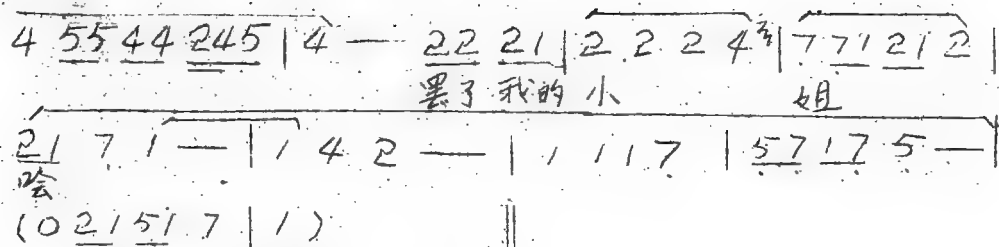 4 55 44 245 | 4 — 22 21 | 2 2 2 4 | 7 71 21 2 |
罢了 我的 小 姐
21 7 1 — | 1 4 2 — | 1 1 1 7 | 57 17 5 — |
哙
(0 21 51 7 | 1) ‖